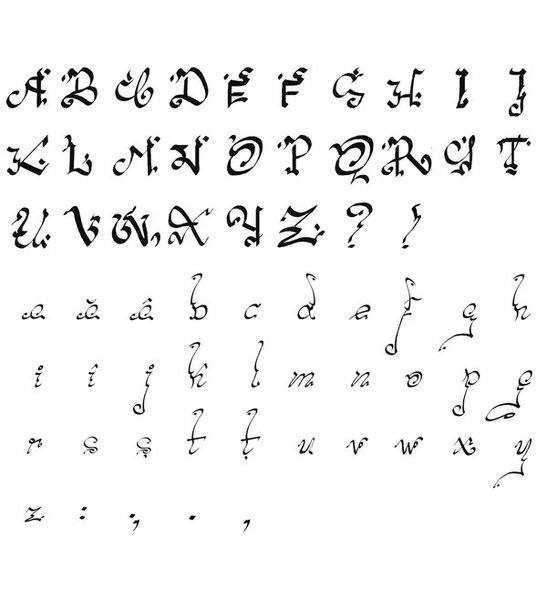 A B C D E F G H I J
K L M N O P Q R S T
U V W X Y Z ? !
a ă â b c d e f g h
i î j k l m n o p q
r s ș t ț u v w x y
z : ; . ,